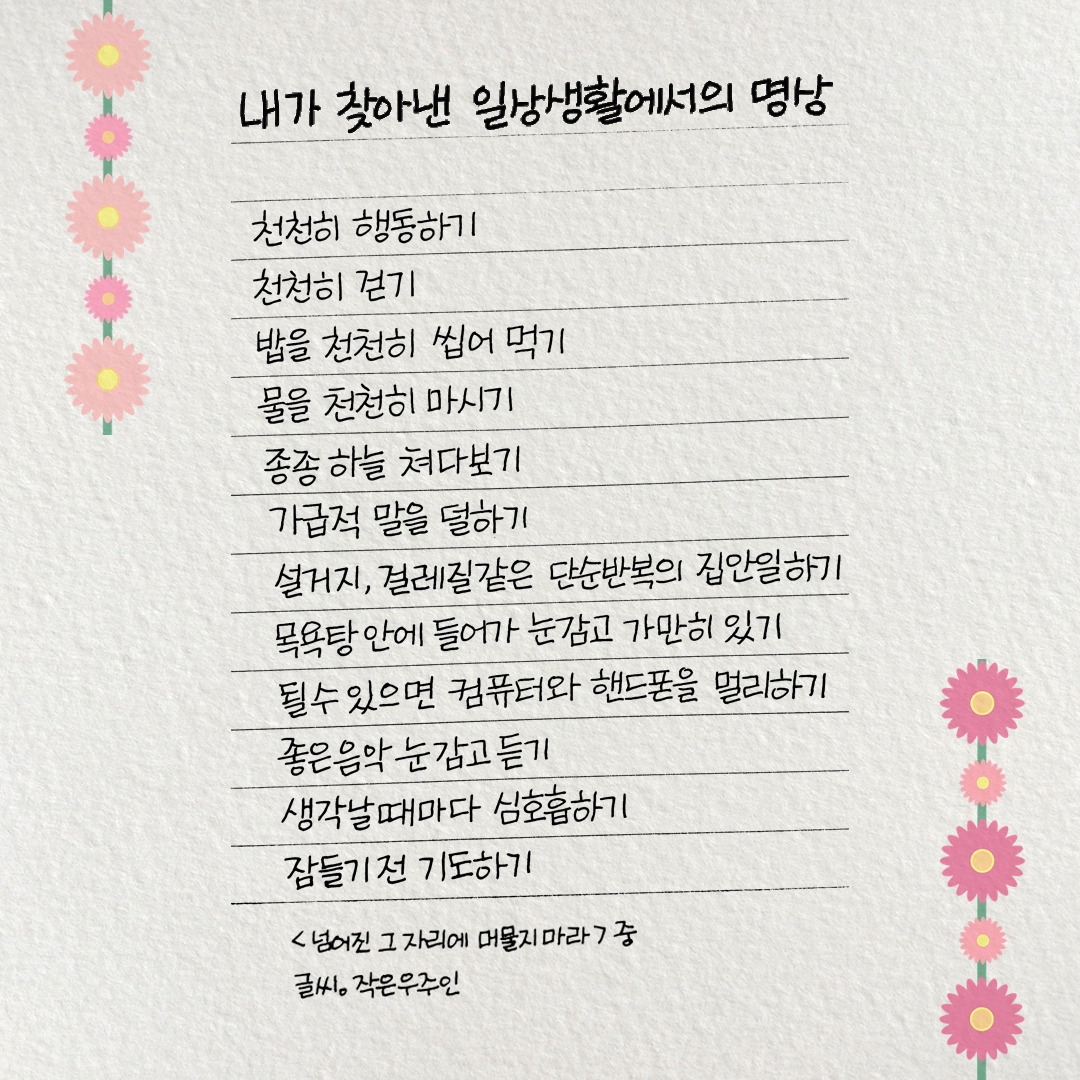 내가 찾아낸 일상생활에서의 명상
천천히 행동하기
천천히 걷기
밥을 천천히 씹어 먹기
물을 천천히 마시기
종종 하늘 쳐다보기
가급적 말을 덜하기
설거지, 걸레질같은 단순반복의 집안일하기
목욕탕 안에 들어가 눈감고 가만히 있기
될수 있으면 컴퓨터와 핸드폰을 멀리하기
좋은음악 눈감고 듣기
생각날때마다 심호흡하기
잠들기 전 기도하기
<넘어진 그 자리에 머물지마라> 중
글씨。작은우주인